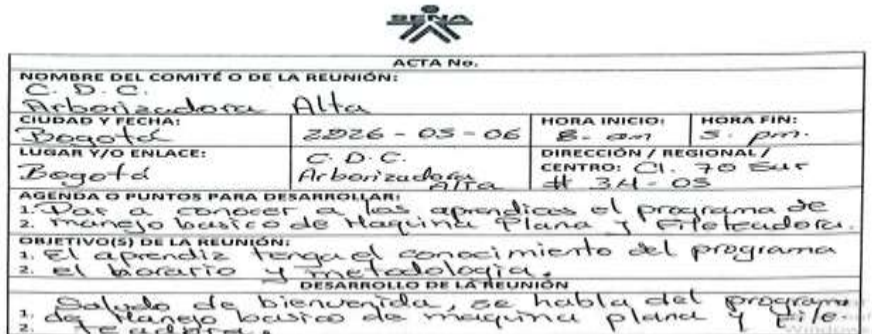 SENA
ACTA No.
NOMBRE DEL COMITÉ O DE LA REUNIÓN:
C. D. C.
Arborizadora Alta
CIUDAD Y FECHA:
Bogotá
2026 - 05 - 06
HORA INICIO:
8. am
HORA FIN:
5. pm.
LUGAR Y/O ENLACE:
Bogotá
C. D. C.
Arborizadora
Alta
DIRECCIÓN / REGIONAL /
CENTRO: Cl. 70 Sur
# 34 - 05
AGENDA O PUNTOS PARA DESARROLLAR:
1. Dar a conocer a las aprendices el programa de
2. manejo basico de Maquina Plana y Fileteadora.
OBJETIVO(S) DE LA REUNIÓN:
1. El aprendiz tenga el conocimiento del programa
2. el horario y metodologia.
DESARROLLO DE LA REUNIÓN
Saludo de bienvenida, se habla del programa
1. de Manejo basico de maquina plana y File-
2. teadora.
Windows